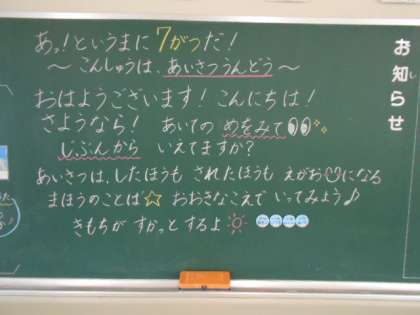 あっ!というまに7がつだ!
～こんしゅうは、あいさつうんどう～
おはようございます!こんにちは!
さようなら! あいての めをみて
じぶんから いえてますか?
あいさつは、したほうも されたほうも えがおになる
まほうのことば☆ おおきなこえで いってみよう♪
きもちが すかっとするよ
お知らせ